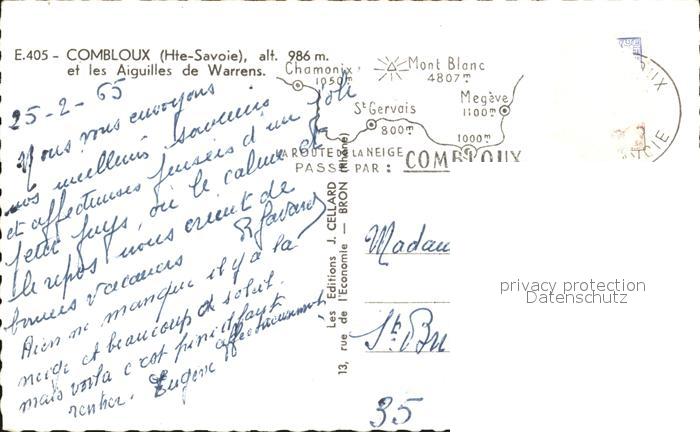 E.405 - COMBLOUX (Hte-Savoie), alt. 986 m.
et les Aiguilles de Warrens.
Chamonix
1050m
Mont Blanc
4807m
St Gervais
800m
Megève
1100m
1000m
LA ROUTE DE LA NEIGE
PASSE PAR : COMBLOUX
25-2-65
Nous vous envoyons
nos meilleurs souvenirs
et affectueuses pensées d'un joli
petit pays, où le calme et
le repos nous créent de
bonnes vacances
Rien ne manque il y a la
neige et beaucoup de soleil.
mais voila c'est fini il faut
rentrer. Eugène affectueusement
Les Editions J. CELLARD
13, rue de l'Economie — BRON (Rhône)
Madam
St. Bri
35
privacy protection
Datenschutz